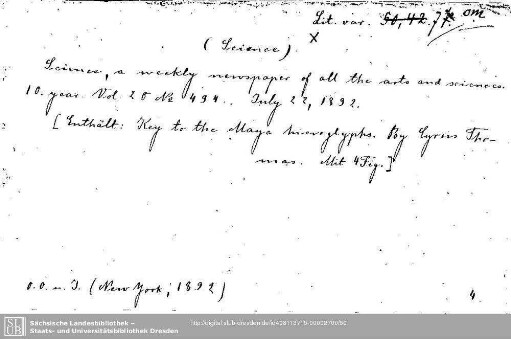 Lit. var. 50, 42. 77 om
X
(Science).
Science, a weekly newspaper of all the arts and sciences.
10. year. Vol 20 No 494.. July 22, 1892.
[Enthält: Key to the Maya hieroglyphs. By Cyrus Tho-
mas. Mit 4 Fig.]
o. O. u. J. (New York, 1892)
4
SLUB
Sächsische Landesbibliothek –
Staats- und Universitätsbibliothek Dresden